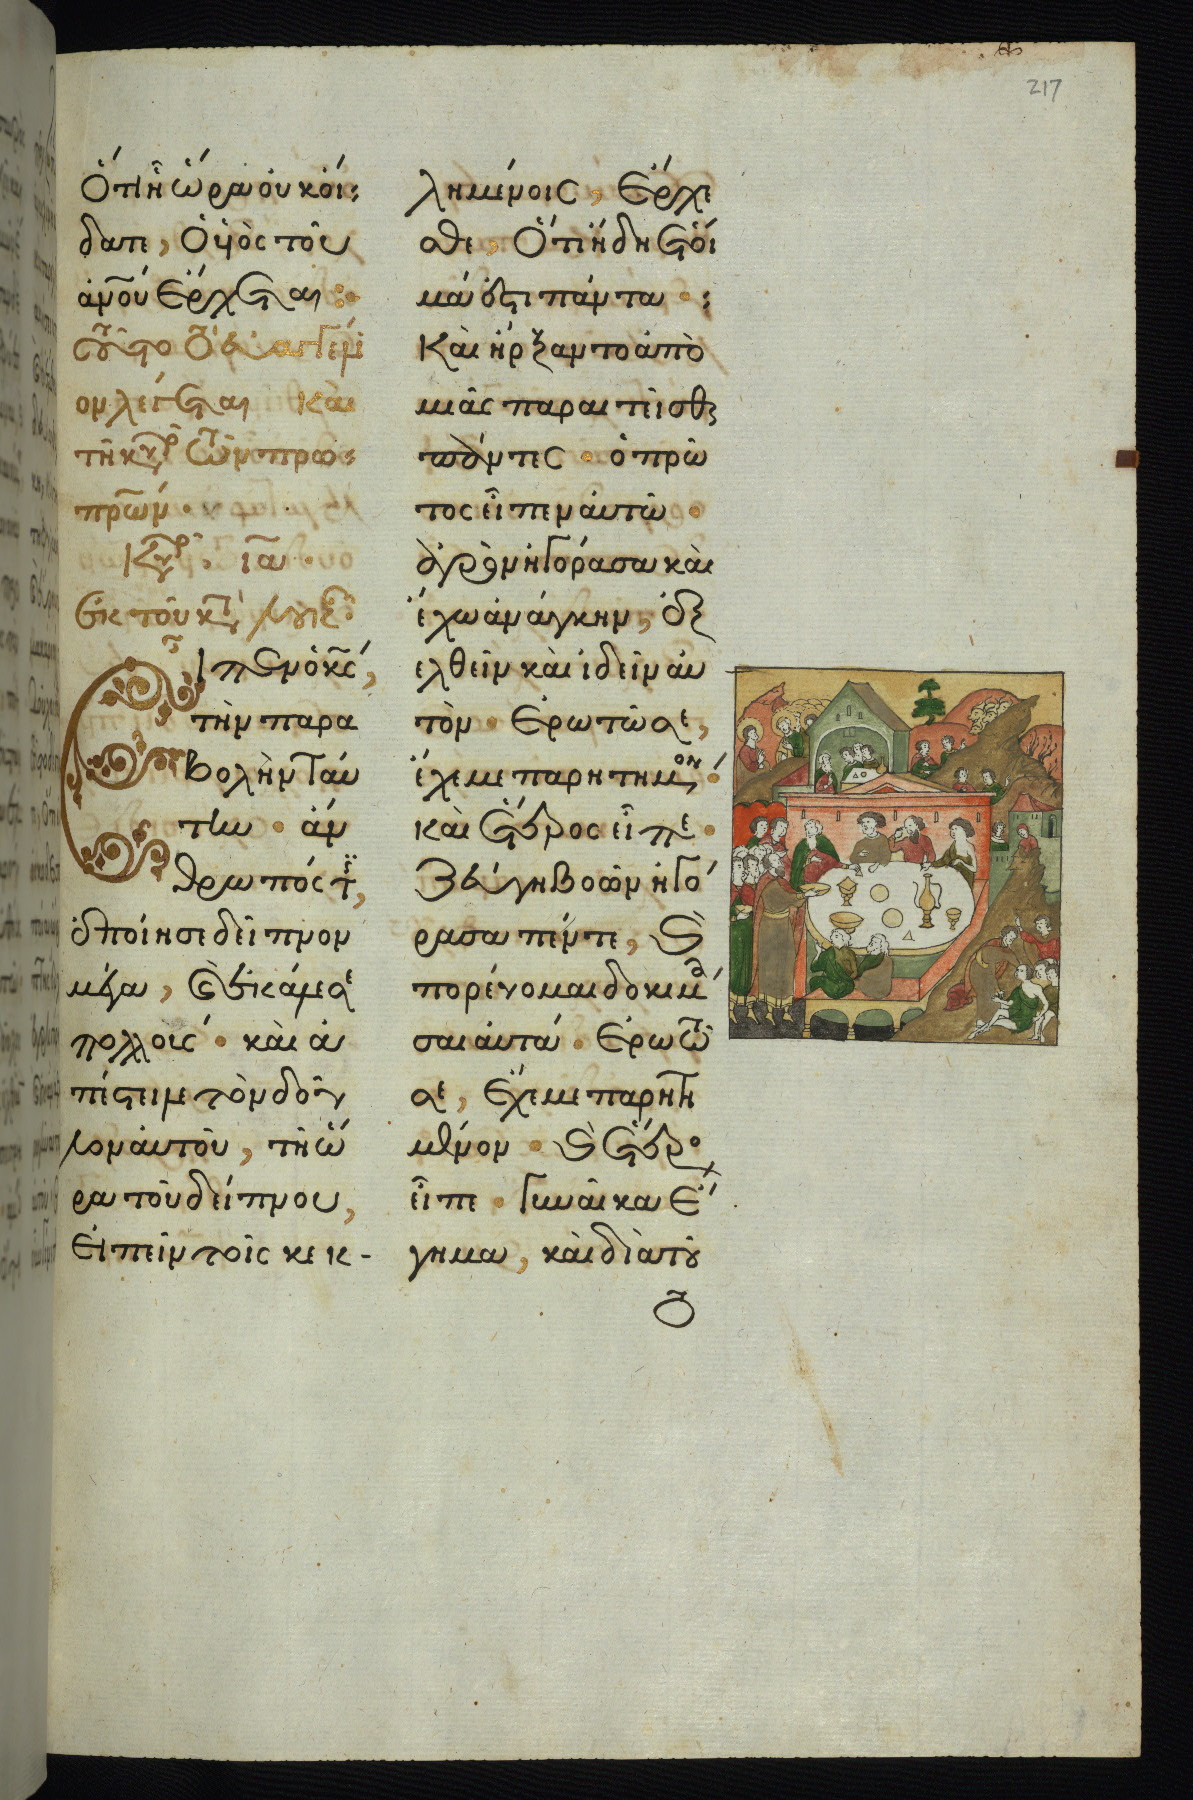 217
Ὅτι ἧ ὥρα οὐκ οἴ
δατε, Ὁ υἱὸς τοῦ
ἀνου ἔρχεται
τῇ κυριακῇ τῶν προ
πρων
Κυριακῇ ια
ἐκ τοῦ κατὰ λουκ
Εἶπεν ὁ κς,
τὴν παρα
βολὴν ταύ
την · ἄν
θρωπός τις,
ἐποίησε δεῖπνον
μέγα, καὶ ἐκάλεσε
πολλούς · καὶ ἀ
πέστειλε τὸν δοῦ
λον αὐτοῦ, τῇ ὥ
ρα τοῦ δείπνου,
Εἰπεῖν τοῖς κεκ-
λημένοις, Ἔρχε
σθε, Ὅτι ἤδη ἕτοι
μά ἐστι πάντα :
Καὶ ἤρξαντο ἀπὸ
μιᾶς παραιτεῖσθαι
πάντες · ὁ πρῶ
τος εἶπεν αὐτῶ ·
ἀγρὸν ἠγόρασα καὶ
ἔχω ἀνάγκην, ἐξ
ελθεῖν καὶ ἰδεῖν αὐ
τόν · Ἐρωτῶ σε,
ἔχε με παρητημένον ·
καὶ ἕτερος εἶπε ·
Ζεύγη βοῶν ἠγό
ρασα πέντε, καὶ
πορεύομαι δοκιμά
σαι αὐτά · Ἐρωτῶ
σε, Ἔχε με παρητη
μένον · καὶ ἕτερο
εἶπε · Γυναῖκα ἔ
γημα, καὶ διὰ τοῦ